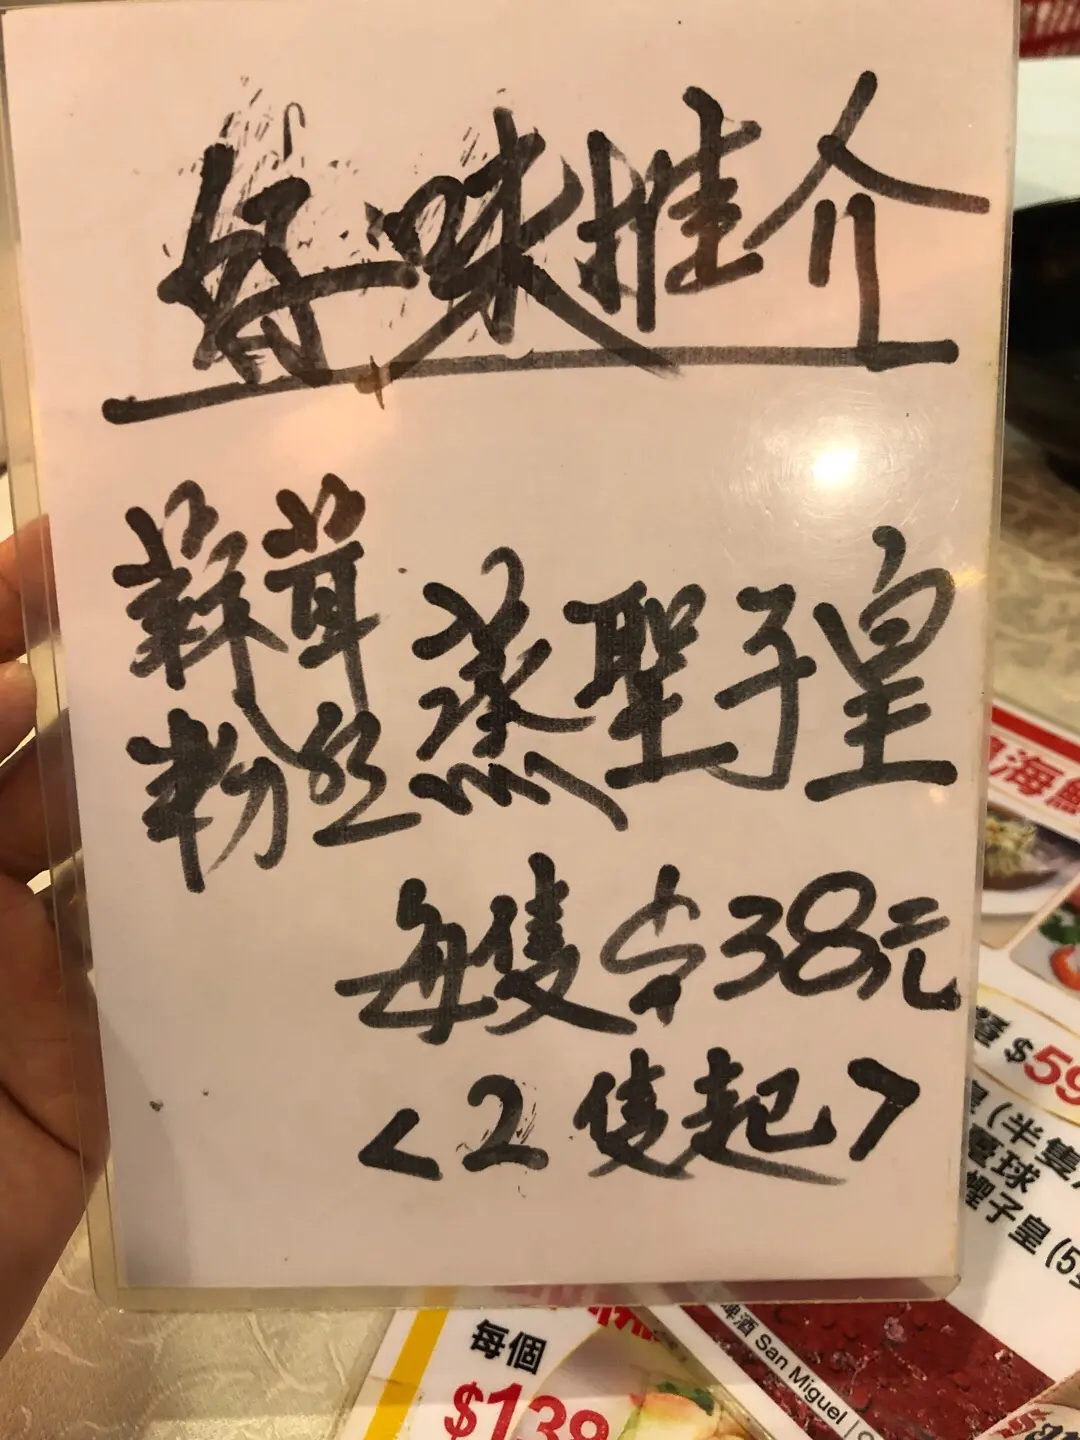 好味推介
蒜茸
粉丝
蒸聖子皇
每隻$38元
<2隻起>
海
$59
(半隻
球
子皇(5
每個
$138
啤酒 San Miguel